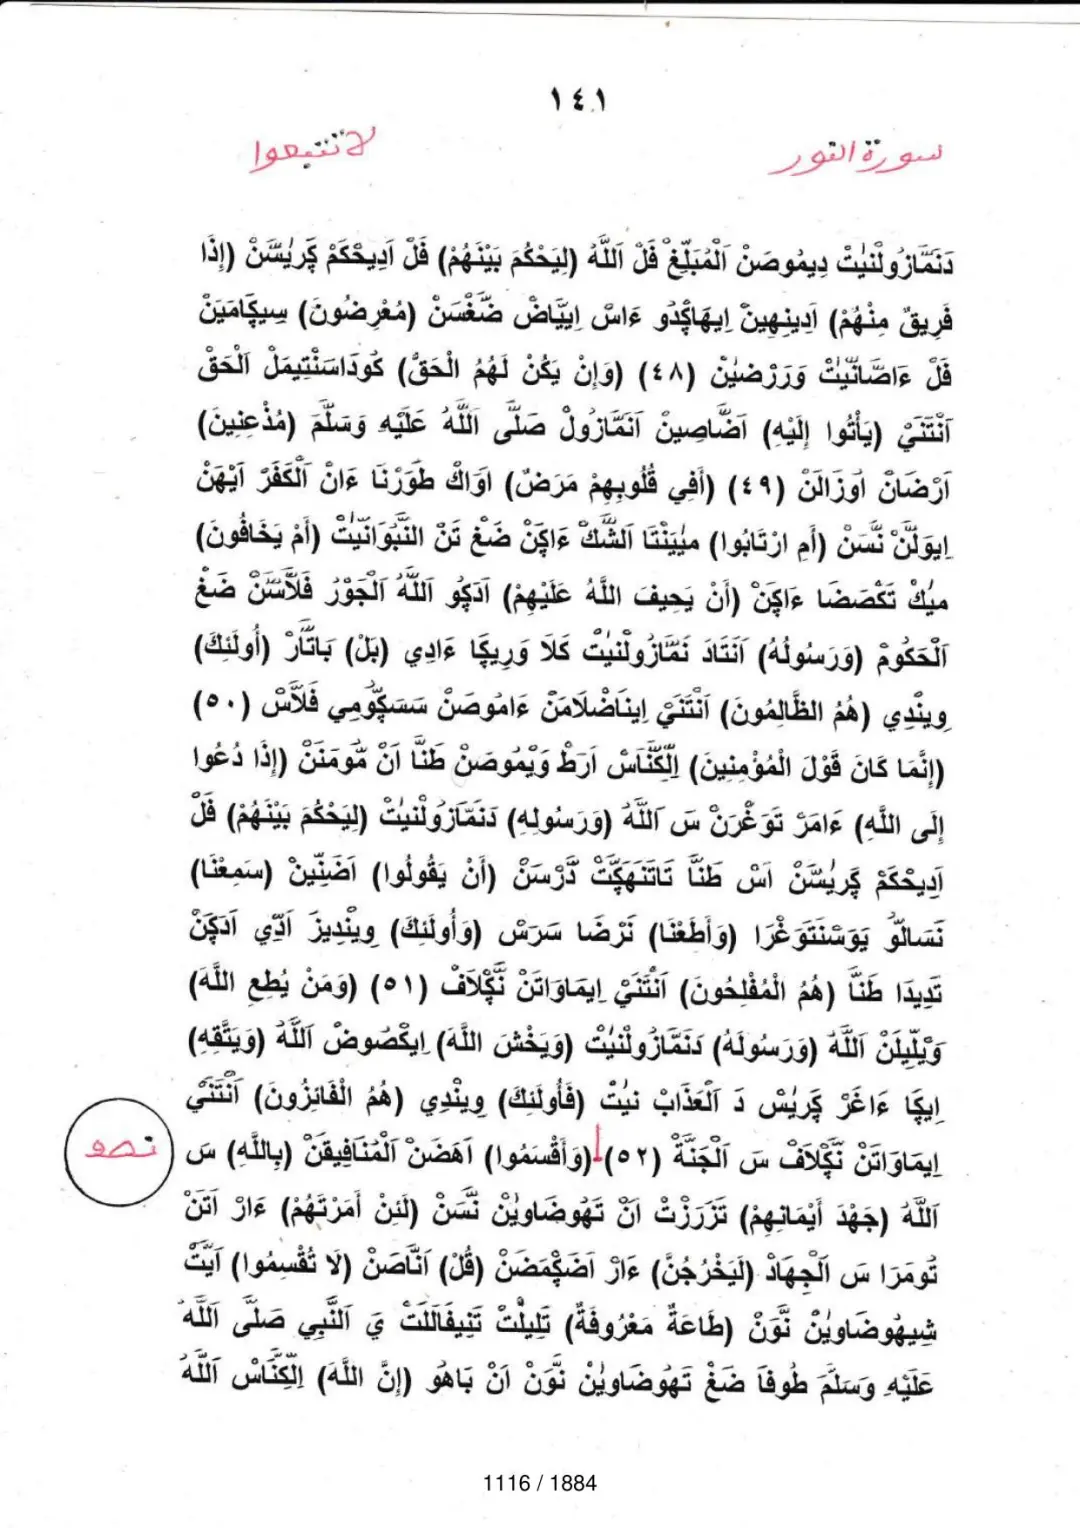 ١٤١
سورة النور
لا تتبعوا
دَنَمَّازُولْنيٰتْ دِيمُوصَنْ اَلْمُبَلِّغْ فَلْ اَللَّهُ (لِيَحْكُمَ بَيْنَهُمْ) فَلْ اَدِيحْكَمْ ݣَرِيٰسَّنْ (إِذَا
فَرِيقٌ مِنْهُمْ) اَدِينِهِينْ اِيهَاݣْدُو ءَاسْ اِييَّاضْ ضَغْسَنْ (مُعْرِضُونَ) سِيݣَامَيَنْ
فَلْ ءَاصَّانَّيٰتْ وَرَرْضيٰنْ (٤٨) (وَإِنْ يَكُنْ لَهُمُ الْحَقُّ) كُودَاسَنْتِيمَلْ اَلْحَقْ
اَنْتَنَيْ (يَأْتُوا إِلَيْهِ) اَضَّاصِينْ اَنَمَّازُولْ صَلَّى اَللَّهُ عَلَيْهِ وَسَلَّمَ (مُذْعِنِينَ)
اَرْضَانْ اَوزَالَنْ (٤٩) (أَفِي قُلُوبِهِمْ مَرَضٌ) اَوَاكْ طَورْنَا ءَانْ اَلْكَفَرْ اَيْهَنْ
اِيوَلَّنْ نَّسَنْ (أَمِ ارْتَابُوا) ميٰيَنْتَا اَلشَّكْ ءَاݣَنْ ضَغْ تَنْ النَّبُوَانَّيٰتْ (أَمْ يَخَافُونَ)
ميٰكْ تَكْصَضَا ءَاݣَنْ (أَنْ يَحِيفَ اللَّهُ عَلَيْهِمْ) اَدَكُو اَللَّهُ اَلْجَوْرْ فَلَّاسَنْ ضَغْ
اَلْحَكُومْ (وَرَسُولُهُ) اَنْتَادَ نَمَّازُولْنيٰتْ كَلَا وَرِيݣَا ءَادِي (بَلْ) بَاتَّارْ (أُولَئِكَ)
وِينْدِي (هُمُ الظَّالِمُونَ) اَنْتَنَيْ اِينَاضْلَامَنْ ءَامُوصَنْ سَسَݣُّومِي فَلَّاسْ (٥٠)
(إِنَّمَا كَانَ قَوْلَ الْمُؤْمِنِينَ) اِلْكَنَّاسْ اَرَطْ وَيْمُوصَنْ طَنَّا اَنْ مُّومَنَنْ (إِذَا دُعُوا
إِلَى اللَّهِ) ءَامَرْ تَوَغْرَنْ سَ اَللَّهُ (وَرَسُولِهِ) دَنَمَّازُولْنيٰتْ (لِيَحْكُمَ بَيْنَهُمْ) فَلْ
اَدِيحْكَمْ ݣَرِيٰسَّنْ اَسْ طَنَّا تَاتَنَهَݣَتْ دَّرْسَنْ (أَنْ يَقُولُوا) اَضَنِّينْ (سَمِعْنَا)
نَسَالَّوْ يَوَسْنَتَوَغْرَا (وَأَطَعْنَا) نَرْضَا سَرَسْ (وَأُولَئِكَ) وِينْدِيزْ اَدِّي اَدَكَنْ
تَدِيدَا طَنَّا (هُمُ الْمُفْلِحُونَ) اَنْتَنَيْ اِيمَاوَاتَنْ نَّݣْلَافْ (٥١) (وَمَنْ يُطِعِ اللَّهَ)
وَيْلِّيلَنْ اَللَّهُ (وَرَسُولَهُ) دَنَمَّازُولْنيٰتْ (وَيَخْشَ اللَّهَ) اِيكْصُوضْ اَللَّهُ (وَيَتَّقِهِ)
اِيݣَا ءَاغَرْ ݣَرِيٰسْ دَ اَلْعَذَابْ نيٰتْ (فَأُولَئِكَ) وِينْدِي (هُمُ الْفَائِزُونَ) اَنْتَنَيْ
اِيمَاوَاتَنْ نَّݣْلَافْ سَ اَلْجَنَّةْ (٥٢) (وَأَقْسَمُوا) اَهَضَنْ اَلْمُنَافِيقَنْ (بِاللَّهِ) سَ
نصو
اَللَّهُ (جَهْدَ أَيْمَانِهِمْ) تَزَرَزْتْ اَنْ تَهُوضَاوِيٰنْ نَّسَنْ (لَئِنْ أَمَرْتَهُمْ) ءَارْ اَتَنْ
تُومَرَا سَ اَلْجِهَادْ (لَيَخْرُجُنَّ) ءَارْ اَضَݣْمَضَنْ (قُلْ) اَنَّاصَنْ (لَا تُقْسِمُوا) اَيَّتْ
شِيهُوضَاوِيٰنْ نَّوَنْ (طَاعَةٌ مَعْرُوفَةٌ) تَلِيلْتْ تَنِيفَالَلَتْ يَ اَلنَّبِي صَلَّى اَللَّهُ
عَلَيْهِ وَسَلَّمَ طُوفَا ضَغْ تَهُوضَاوِيٰنْ نَّوَنْ اَنْ بَاهُو (إِنَّ اللَّهَ) اِلْكَنَّاسْ اَللَّهُ
1116 / 1884